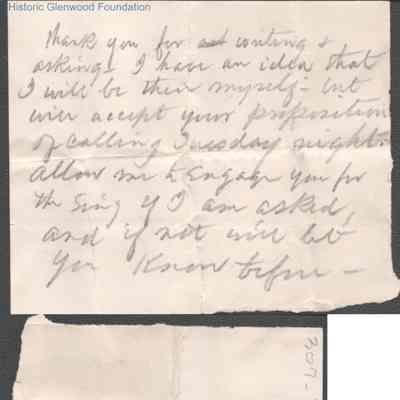 Historic Glenwood Foundation
Thank you for writing &
asking. I have an idea that
I will be their myself - but
will accept your proposition
of calling Tuesday night.
Allow me to Engage you for
the Sing if I am asked,
and if not will let
you Know before -